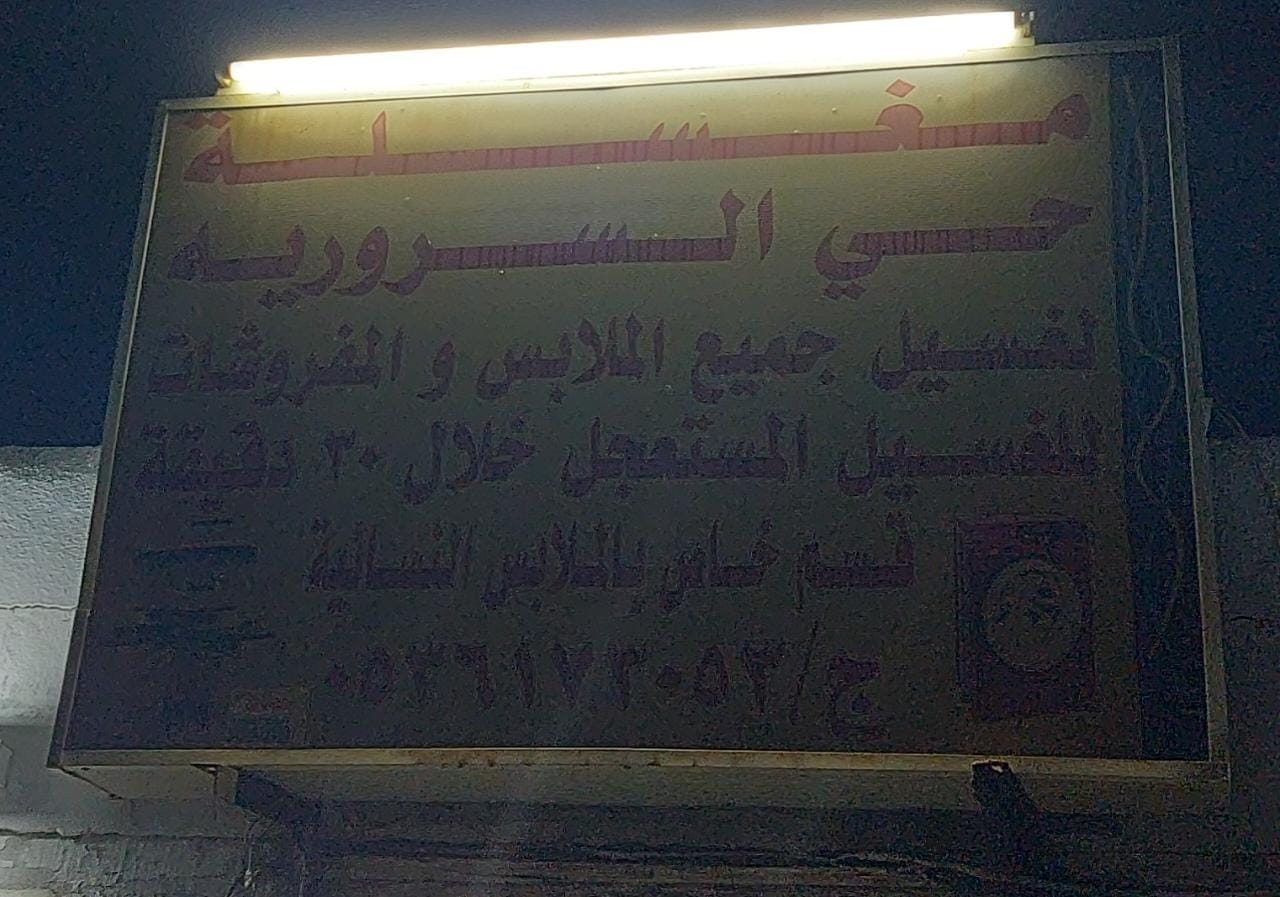 مغسلة
حي السروريه
لغسيل جميع الملابس و المفروشات
للغسيل المستعجل خلال ٣٠ دقيقة
قسم خاص بالملابس النسائية
ج/٠٥٣٦١٧٣٠٥٣